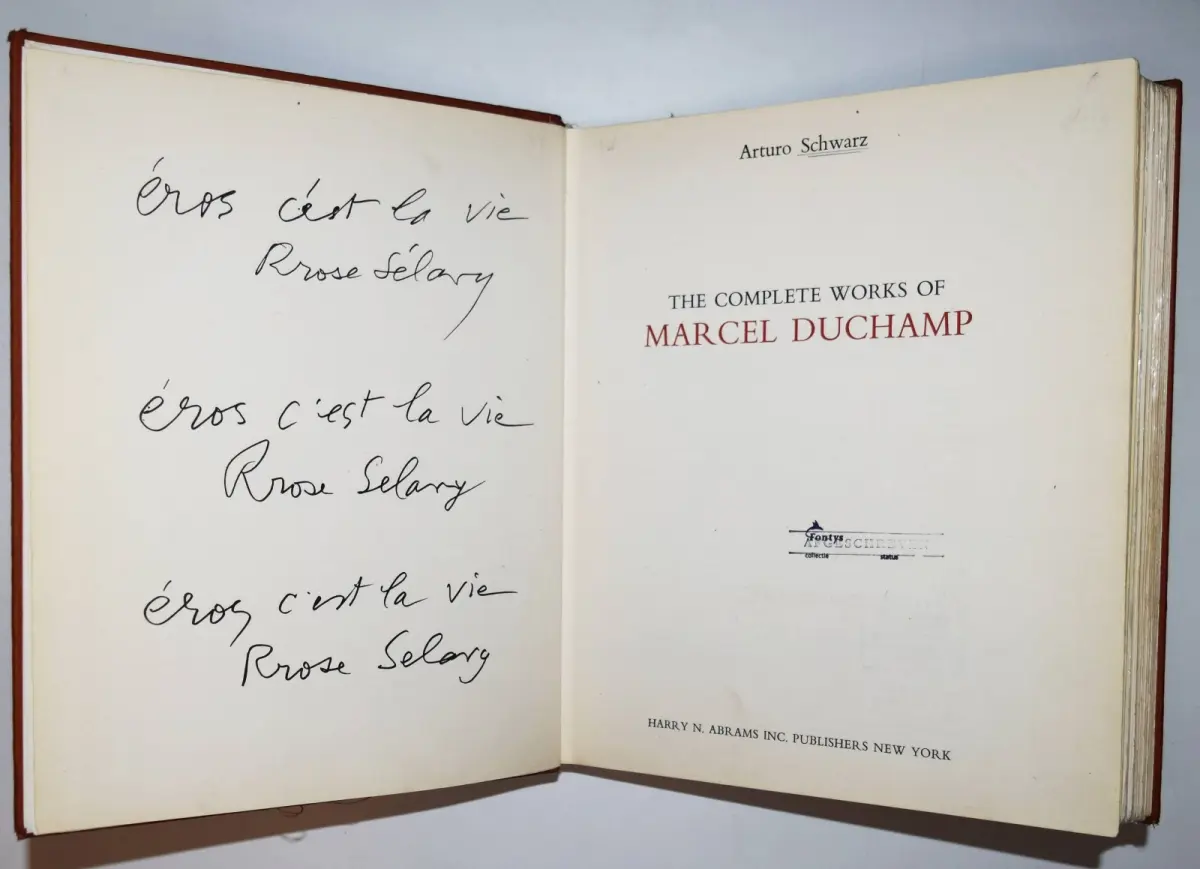 éros c'est la vie
Rrose Sélavy
éros c'est la vie
Rrose Selavy
éros c'est la vie
Rrose Selavy
Arturo Schwarz
THE COMPLETE WORKS OF
MARCEL DUCHAMP
fontys
AFGESCHREVEN
collectie status
HARRY N. ABRAMS INC. PUBLISHERS NEW YORK